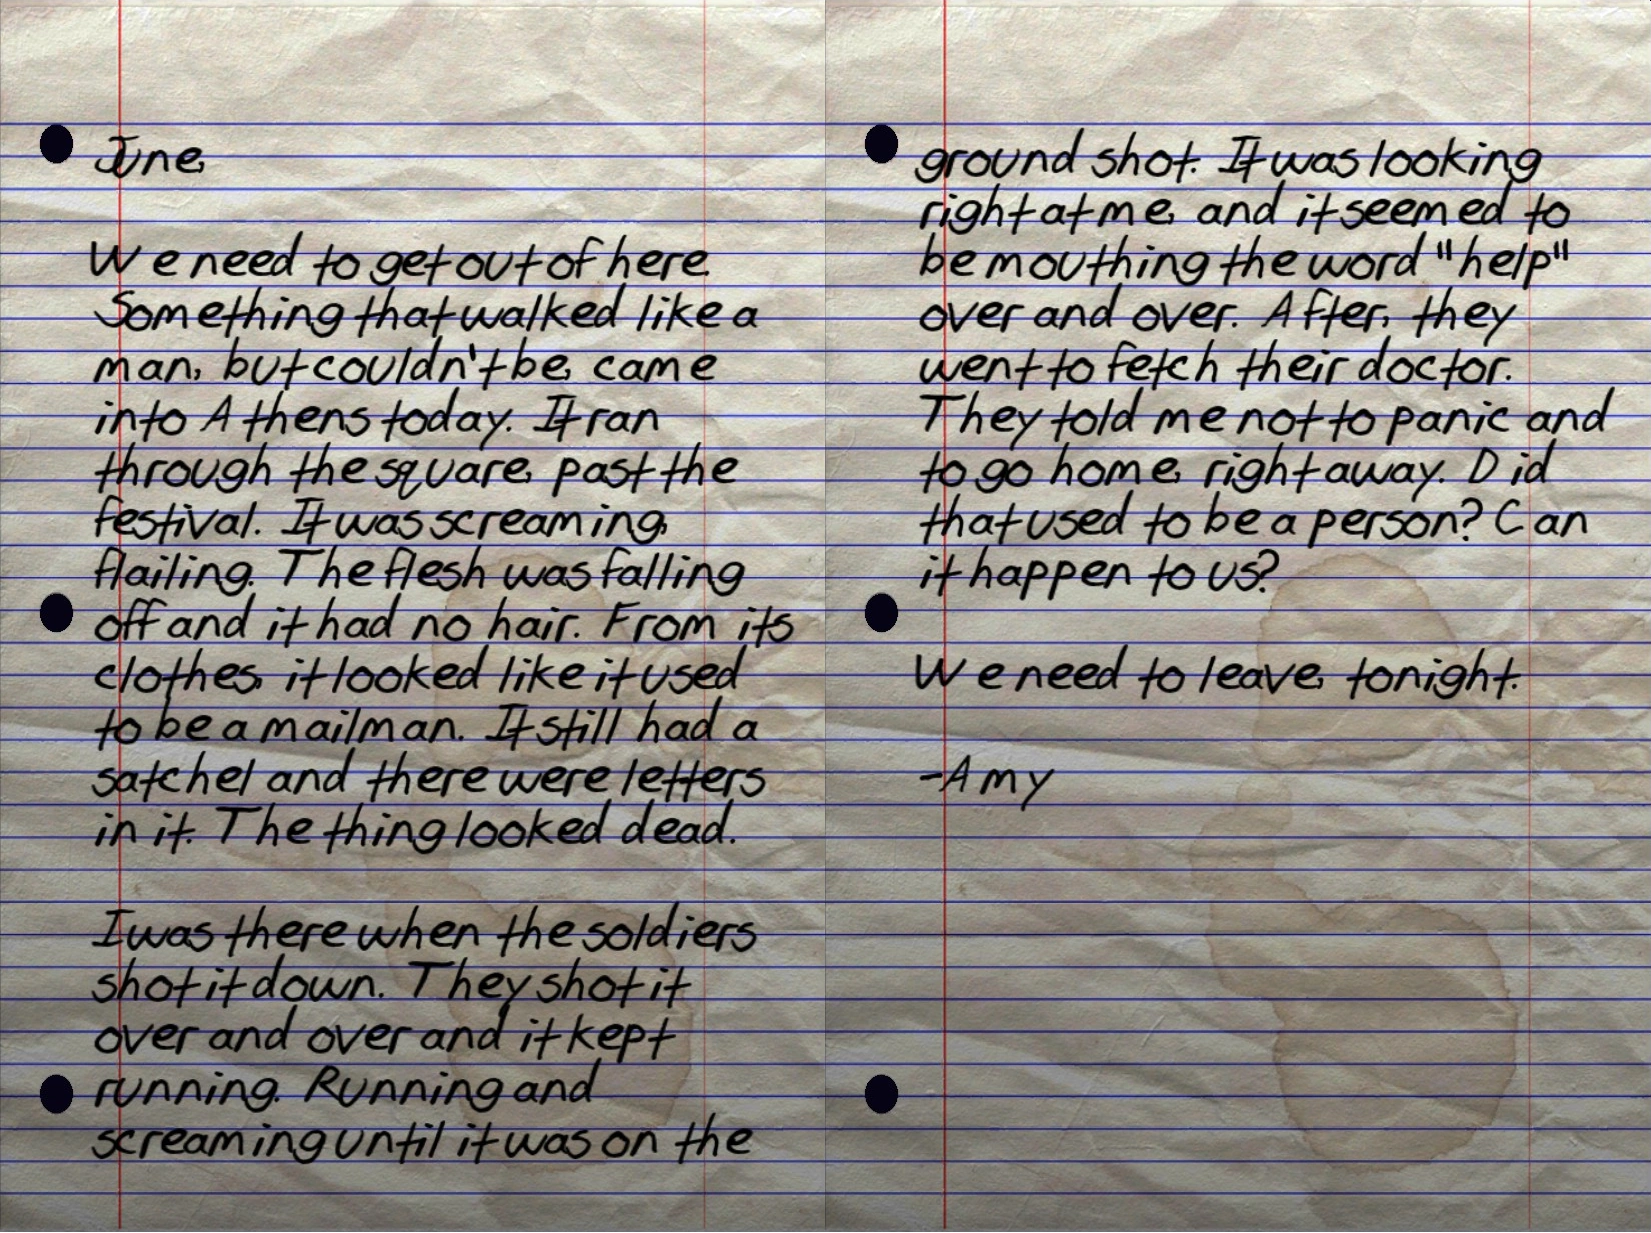 June,
We need to get out of here.
Something that walked like a
man, but couldn't be, came
into Athens today. It ran
through the square, past the
festival. It was screaming,
flailing. The flesh was falling
off and it had no hair. From its
clothes, it looked like it used
to be a mailman. It still had a
satchel and there were letters
in it. The thing looked dead.
I was there when the soldiers
shot it down. They shot it
over and over and it kept
running. Running and
screaming until it was on the
ground shot. It was looking
right at me, and it seemed to
be mouthing the word "help"
over and over. After, they
went to fetch their doctor.
They told me not to panic and
to go home, right away. Did
that used to be a person? Can
it happen to us?
We need to leave, tonight.
-Amy